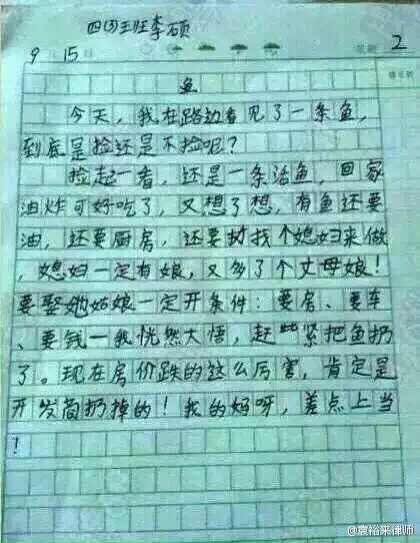 四(3)班李硕
9 15
2
鱼
今天，我在路边看见了一条鱼，
到底是捡还是不捡呢？
捡起一看，还是一条活鱼，回家
油炸可好吃了，又想了想，有鱼还要
油，还要厨房，还要找个媳妇来做
，媳妇一定有娘，又多了个丈母娘！
要娶她姑娘一定开条件：要房、要车
、要钱—我恍然大悟，赶紧把鱼扔
了。现在房价跌的这么厉害，肯定是
开发商扔掉的！我的妈呀，差点上当
！
@袁裕来律师